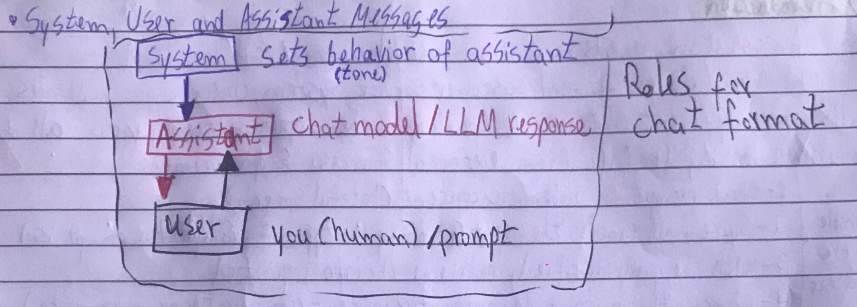 • System, User and Assistant Messages
System sets behavior of assistant
(tone)
Assistant chat model/LLM response
User you (human)/prompt
Roles for
chat format